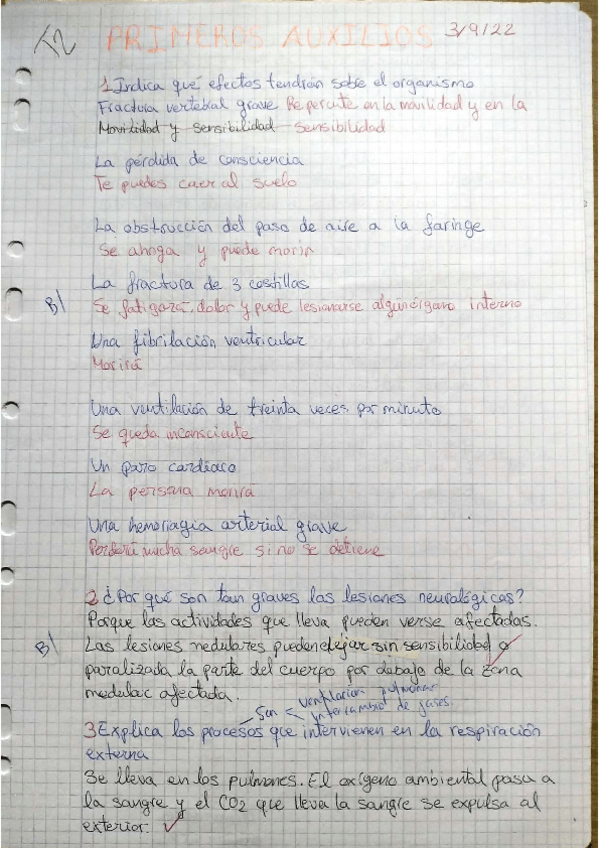 T2 PRIMEROS AUXILIOS 3/9/22
1 Indica qué efectos tendrán sobre el organismo
Fractura vertebral grave Repercute en la movilidad y en la
Movilidad y sensibilidad sensibilidad
La pérdida de consciencia
Te puedes caer al suelo
La obstrucción del paso de aire a la faringe
Se ahoga y puede morir
La fractura de 3 costillas
B/ Se fatigará, dolor y puede lesionarse algún órgano interno
Una fibrilación ventricular
Morirá
Una ventilación de treinta veces por minuto
Se queda inconsciente
Un paro cardíaco
La persona morirá
Una hemorragia arterial grave
Perderá mucha sangre si no se detiene
2 ¿Por qué son tan graves las lesiones neurológicas?
Porque las actividades que lleva pueden verse afectadas.
B/ Las lesiones medulares pueden dejar sin sensibilidad o
paralizada la parte del cuerpo por debajo de la zona
medular afectada.
Son ventilación pulmonar
intercambio de gases.
3 Explica los procesos que intervienen en la respiración
externa
Se lleva en los pulmones. El oxígeno ambiental pasa a
la sangre y el CO2 que lleva la sangre se expulsa al
exterior.